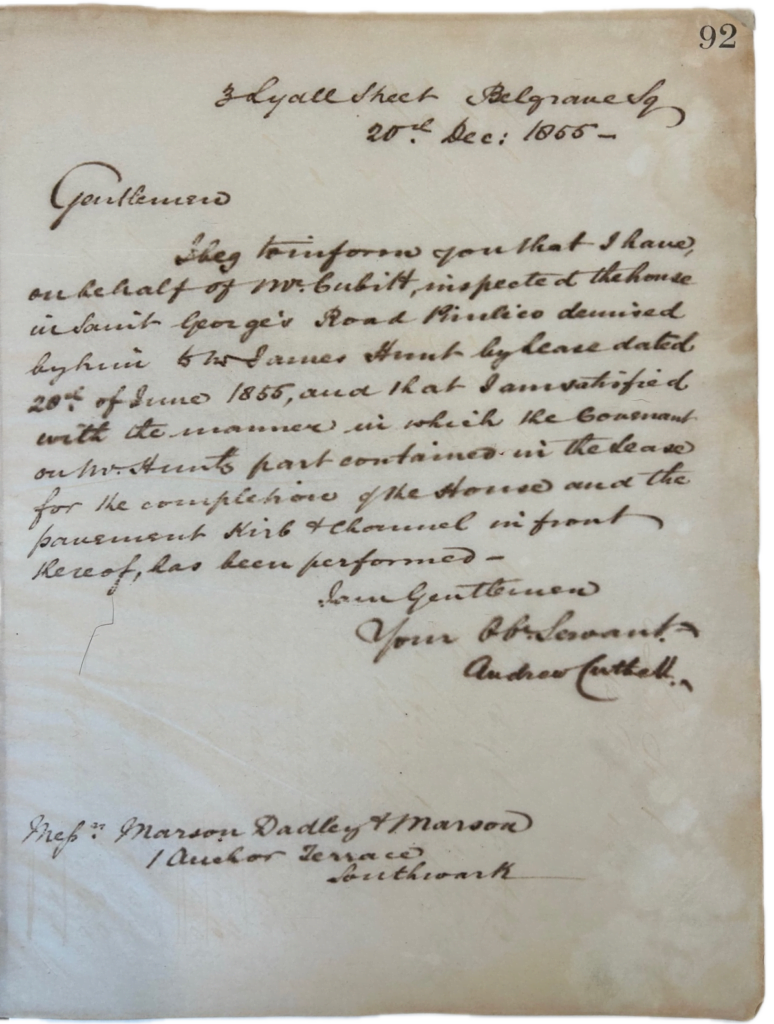 92
3 Lyall Street Belgrave Sq
20th Dec: 1855 —
Gentlemen
I beg to inform you that I have,
on behalf of Mr. Cubitt, inspected the house
in Saint George's Road Pimlico demised
by him to Mr James Hunt by Lease dated
20th of June 1855, and that I am satisfied
with the manner in which the Covenant
on Mr. Hunts part contained in the Lease
for the completion of the House and the
pavement Kirb & Channel in front
thereof, has been performed —
I am Gentlemen
Your Obt Servant.
Andrew Cuthell.
Messrs. Marson Dadley & Marson
1 Anchor Terrace
Southwark